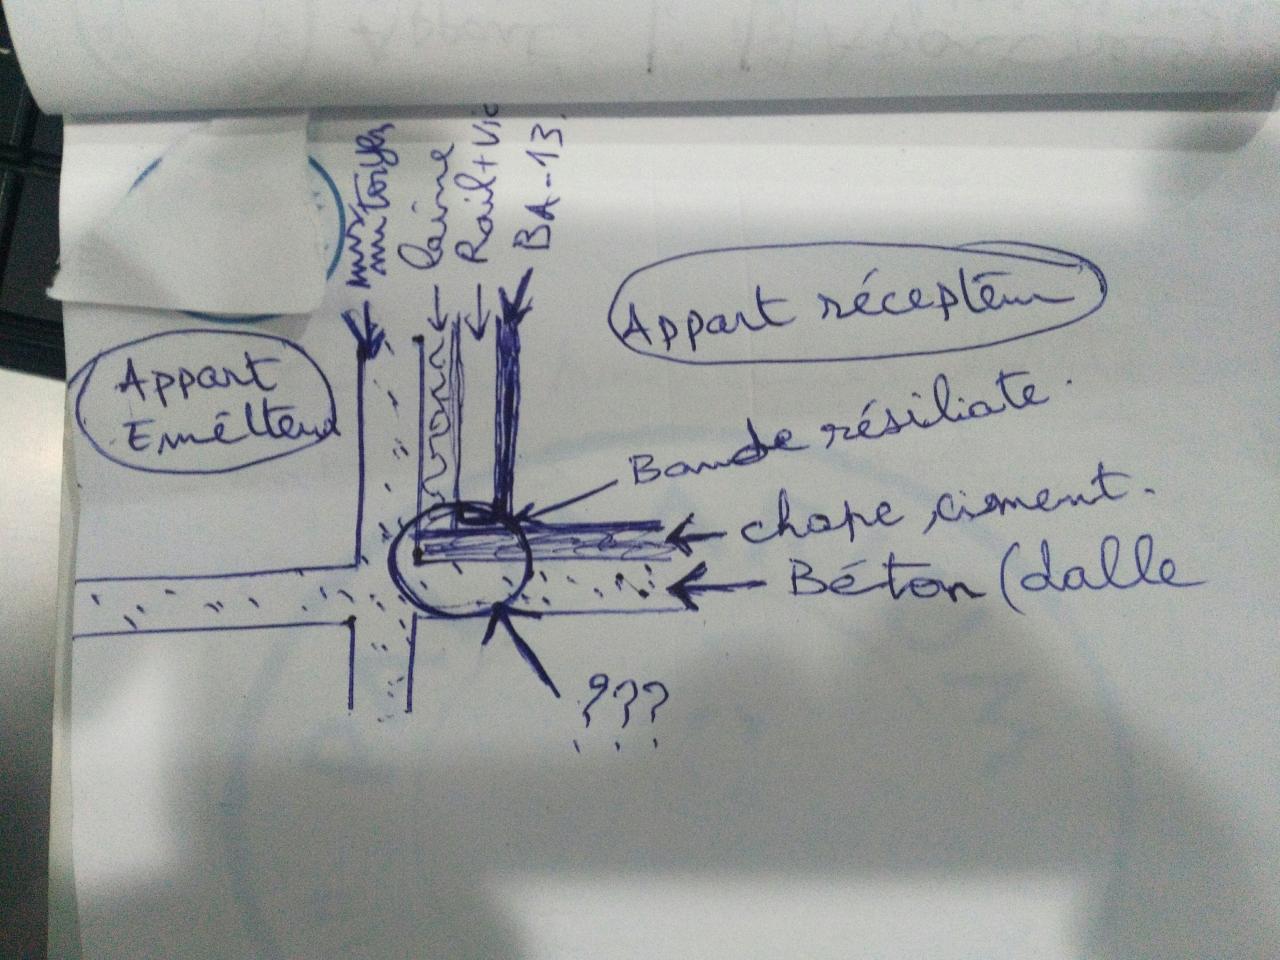 mur mitoyen
laine
Rail + Vis
BA-13.
Appart récepteur
Appart
Emetteur
Bande résiliate.
chape ciment.
Béton (dalle
???